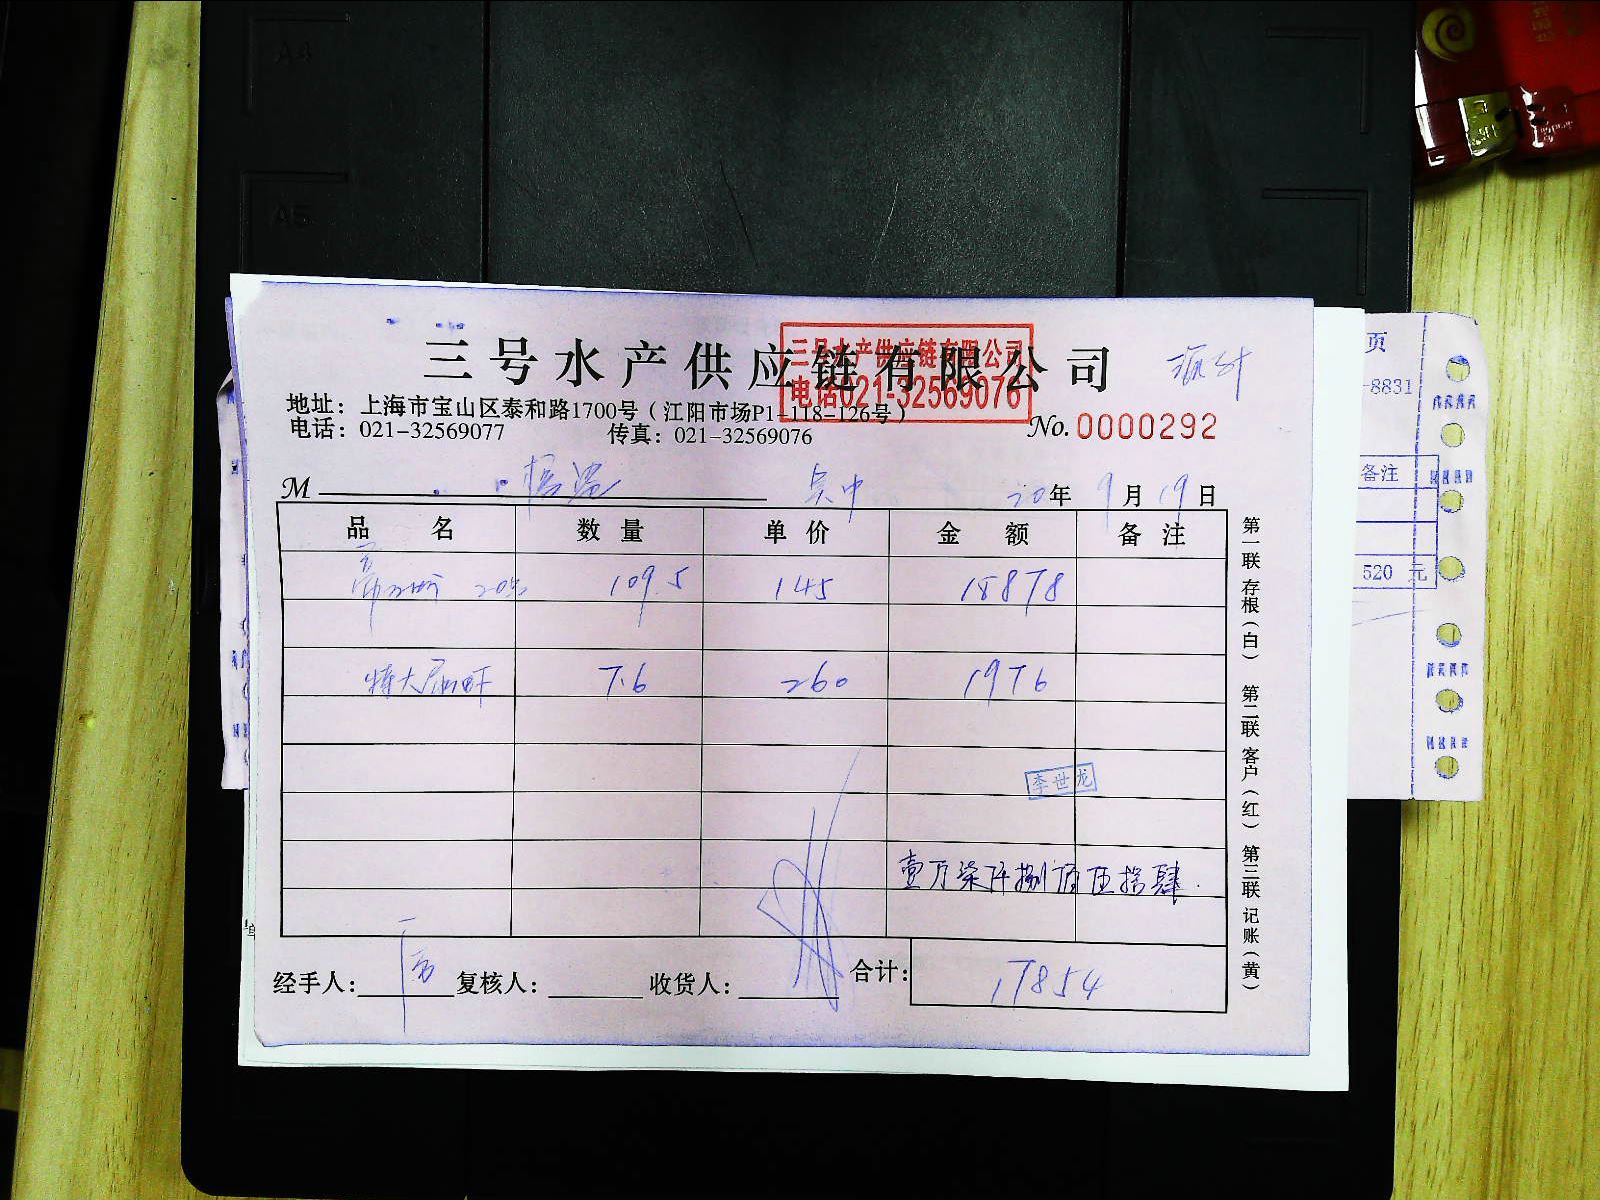 A4
A5
三号水产供应链有限公司
三号水产供应链有限公司
电话021-32569076
地址：上海市宝山区泰和路1700号（江阳市场P1-118-126号）
电话：021-32569077 传真：021-32569076
No. 0000292
M 吴中 20年9月19日
品名 数量 单价 金额 备注
109.5 145 15878
特大 7.6 260 1976
李世龙
壹万柒仟捌佰伍拾肆
经手人： 复核人： 收货人： 合计： 17854
第一联 存根（白） 第二联 客户（红） 第三联 记账（黄）
页
-8831
备注
520 元